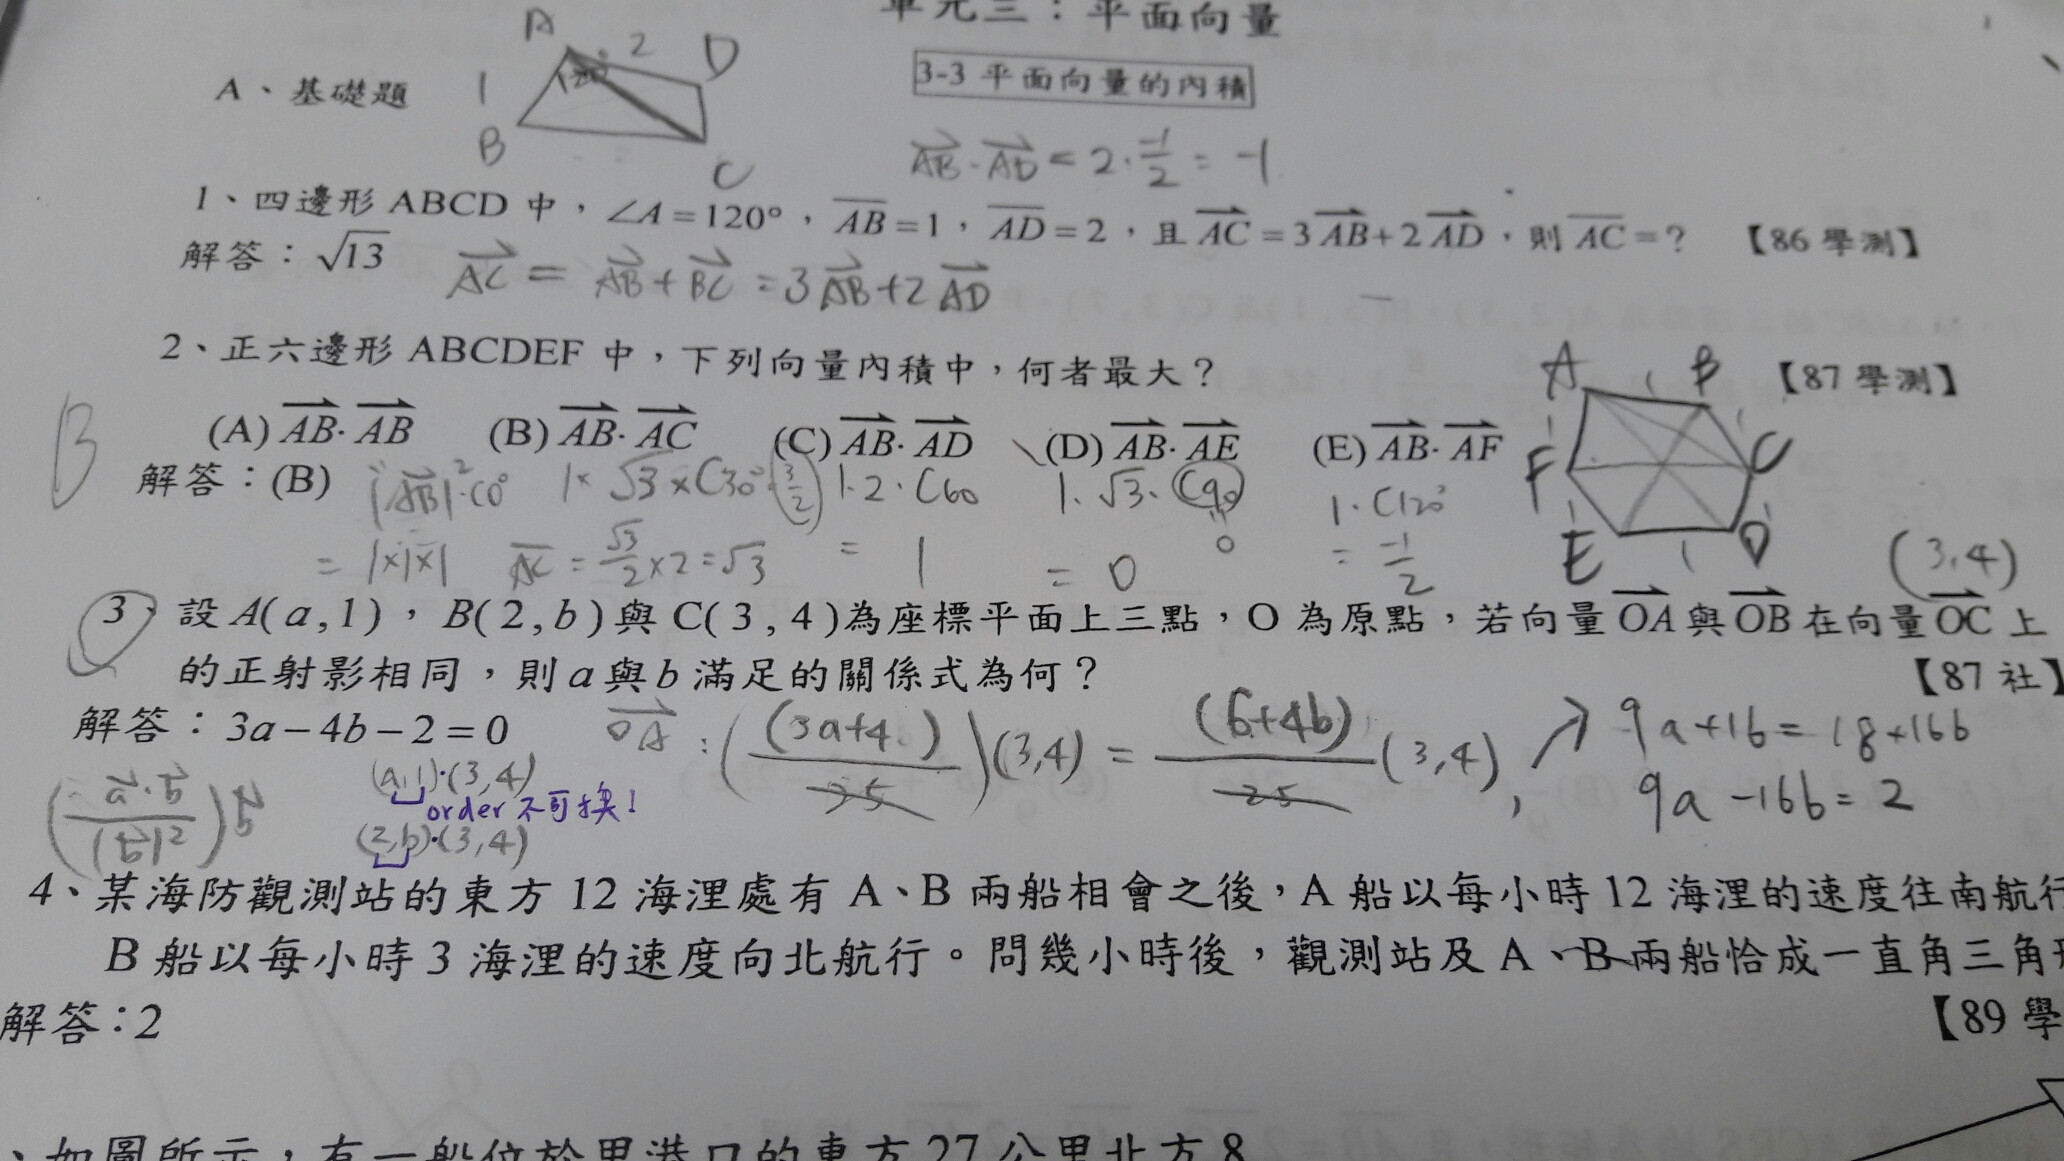 單元三：平面向量
A 2 D
A、基礎題 1 120° 3-3 平面向量的內積
B C AB·AD = 2·-1/2 = -1
1、四邊形 ABCD 中，∠A＝120°，AB＝1，AD＝2，且 AC＝3AB+2AD，則 AC＝？ 【86 學測】
解答：√13 AC = AB + BC = 3AB + 2AD
2、正六邊形 ABCDEF 中，下列向量內積中，何者最大？ 【87 學測】
A 1 B
B (A) AB·AB (B) AB·AC (C) AB·AD (D) AB·AE (E) AB·AF
F C
解答：(B) |AB|²·C0° 1×√3×C30° 3/2 1·2·C60 1·√3·C90 1·C120°
= 1×1×1 AC = √3/2×2=√3 = 1 = 0 0 = -1/2
E 1 D (3,4)
3、設 A(a,1)，B(2,b)與 C(3,4)為座標平面上三點，O 為原點，若向量 OA 與 OB 在向量 OC 上
的正射影相同，則 a 與 b 滿足的關係式為何？ 【87 社】
解答：3a－4b－2＝0 OA : ((3a+4)/25)(3,4) = (6+4b)/25 (3,4), ↗ 9a+16=18+16b
9a-16b=2
(a·b/|b|²)b (a,1)·(3,4)
order 不可換!
(2,b)·(3,4)
4、某海防觀測站的東方 12 海浬處有 A、B 兩船相會之後，A 船以每小時 12 海浬的速度往南航行
B 船以每小時 3 海浬的速度向北航行。問幾小時後，觀測站及 A、B 兩船恰成一直角三角形
解答：2 【89 學
、如圖所示，有一船位於甲港口的東方 27 公里北方 8